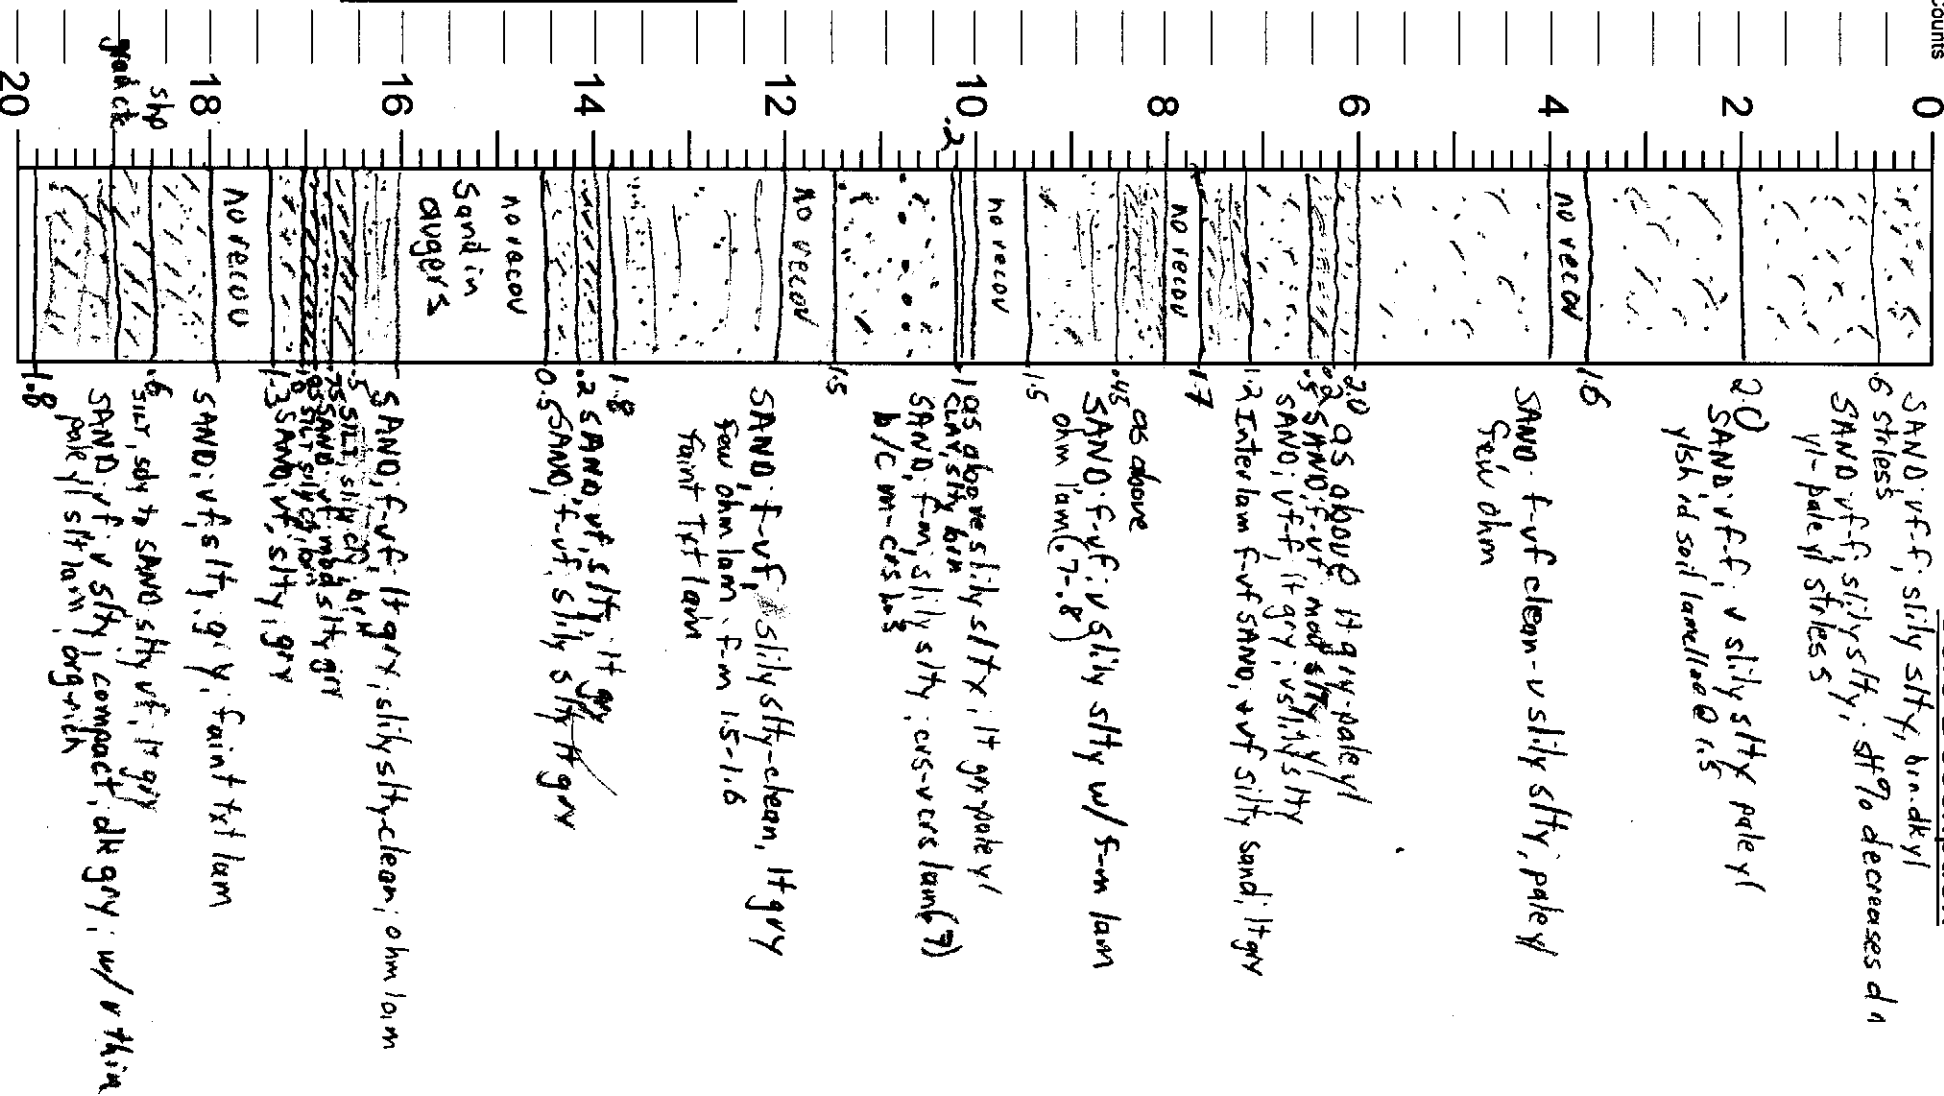 Counts
0
2
4
6
8
10
12
14
16
18
20
SAND: vf-f; slily slty, brn-dkyl
.6 strless
SAND vf-f, slily slty; slt% decreases dn
yl-pale yl strless
2.0
SAND: vf-f; v slily slty pale yl
ylsh rd soil lamellae @ 1.5
1.6
no recov
SAND: f-vf clean-v slily slty, pale yl
few ohm
2.0 as above lt gry-pale yl
.2 SAND, f-vf mod slty
.5 SAND, vf-f, lt gry; v slily slty
1.2 Interlam f-vf SAND, + vf silty sand, lt gry
1.7
no recov
as above
.45
SAND: f-vf; v slily slty w/ f-m lam
ohm lam (.7-.8)
1.5
no recov
.2
.1 as above slily slty; lt gry pale yl
CLAY, slty brn
SAND, f-m, slily slty; crs-vcrs lam (.7)
b/c m-crs
1.5
no recov
SAND, f-vf, slily slty-clean, lt gry
few ohm lam f-m 1.5-1.6
faint Txt lam
1.8
.2 SAND, vf, slty, lt gry
0.5 SAND, f-vf, slily slty lt gry
no recov
Sand in
augers
SAND, f-vf, lt gry, slily slty-clean; ohm lam
.5 SILT, brn
.75 SAND: vf mod slty gry
1.3 SAND, vf, slty, gry
no recov
SAND: vf, slty, gry, faint txt lam
.6 SILT, sdy to SAND slty vf, lt gry
SAND: vf; v slty, compact, dk gry; w/ v thin
pale yl slt lam, org-rich
1.8